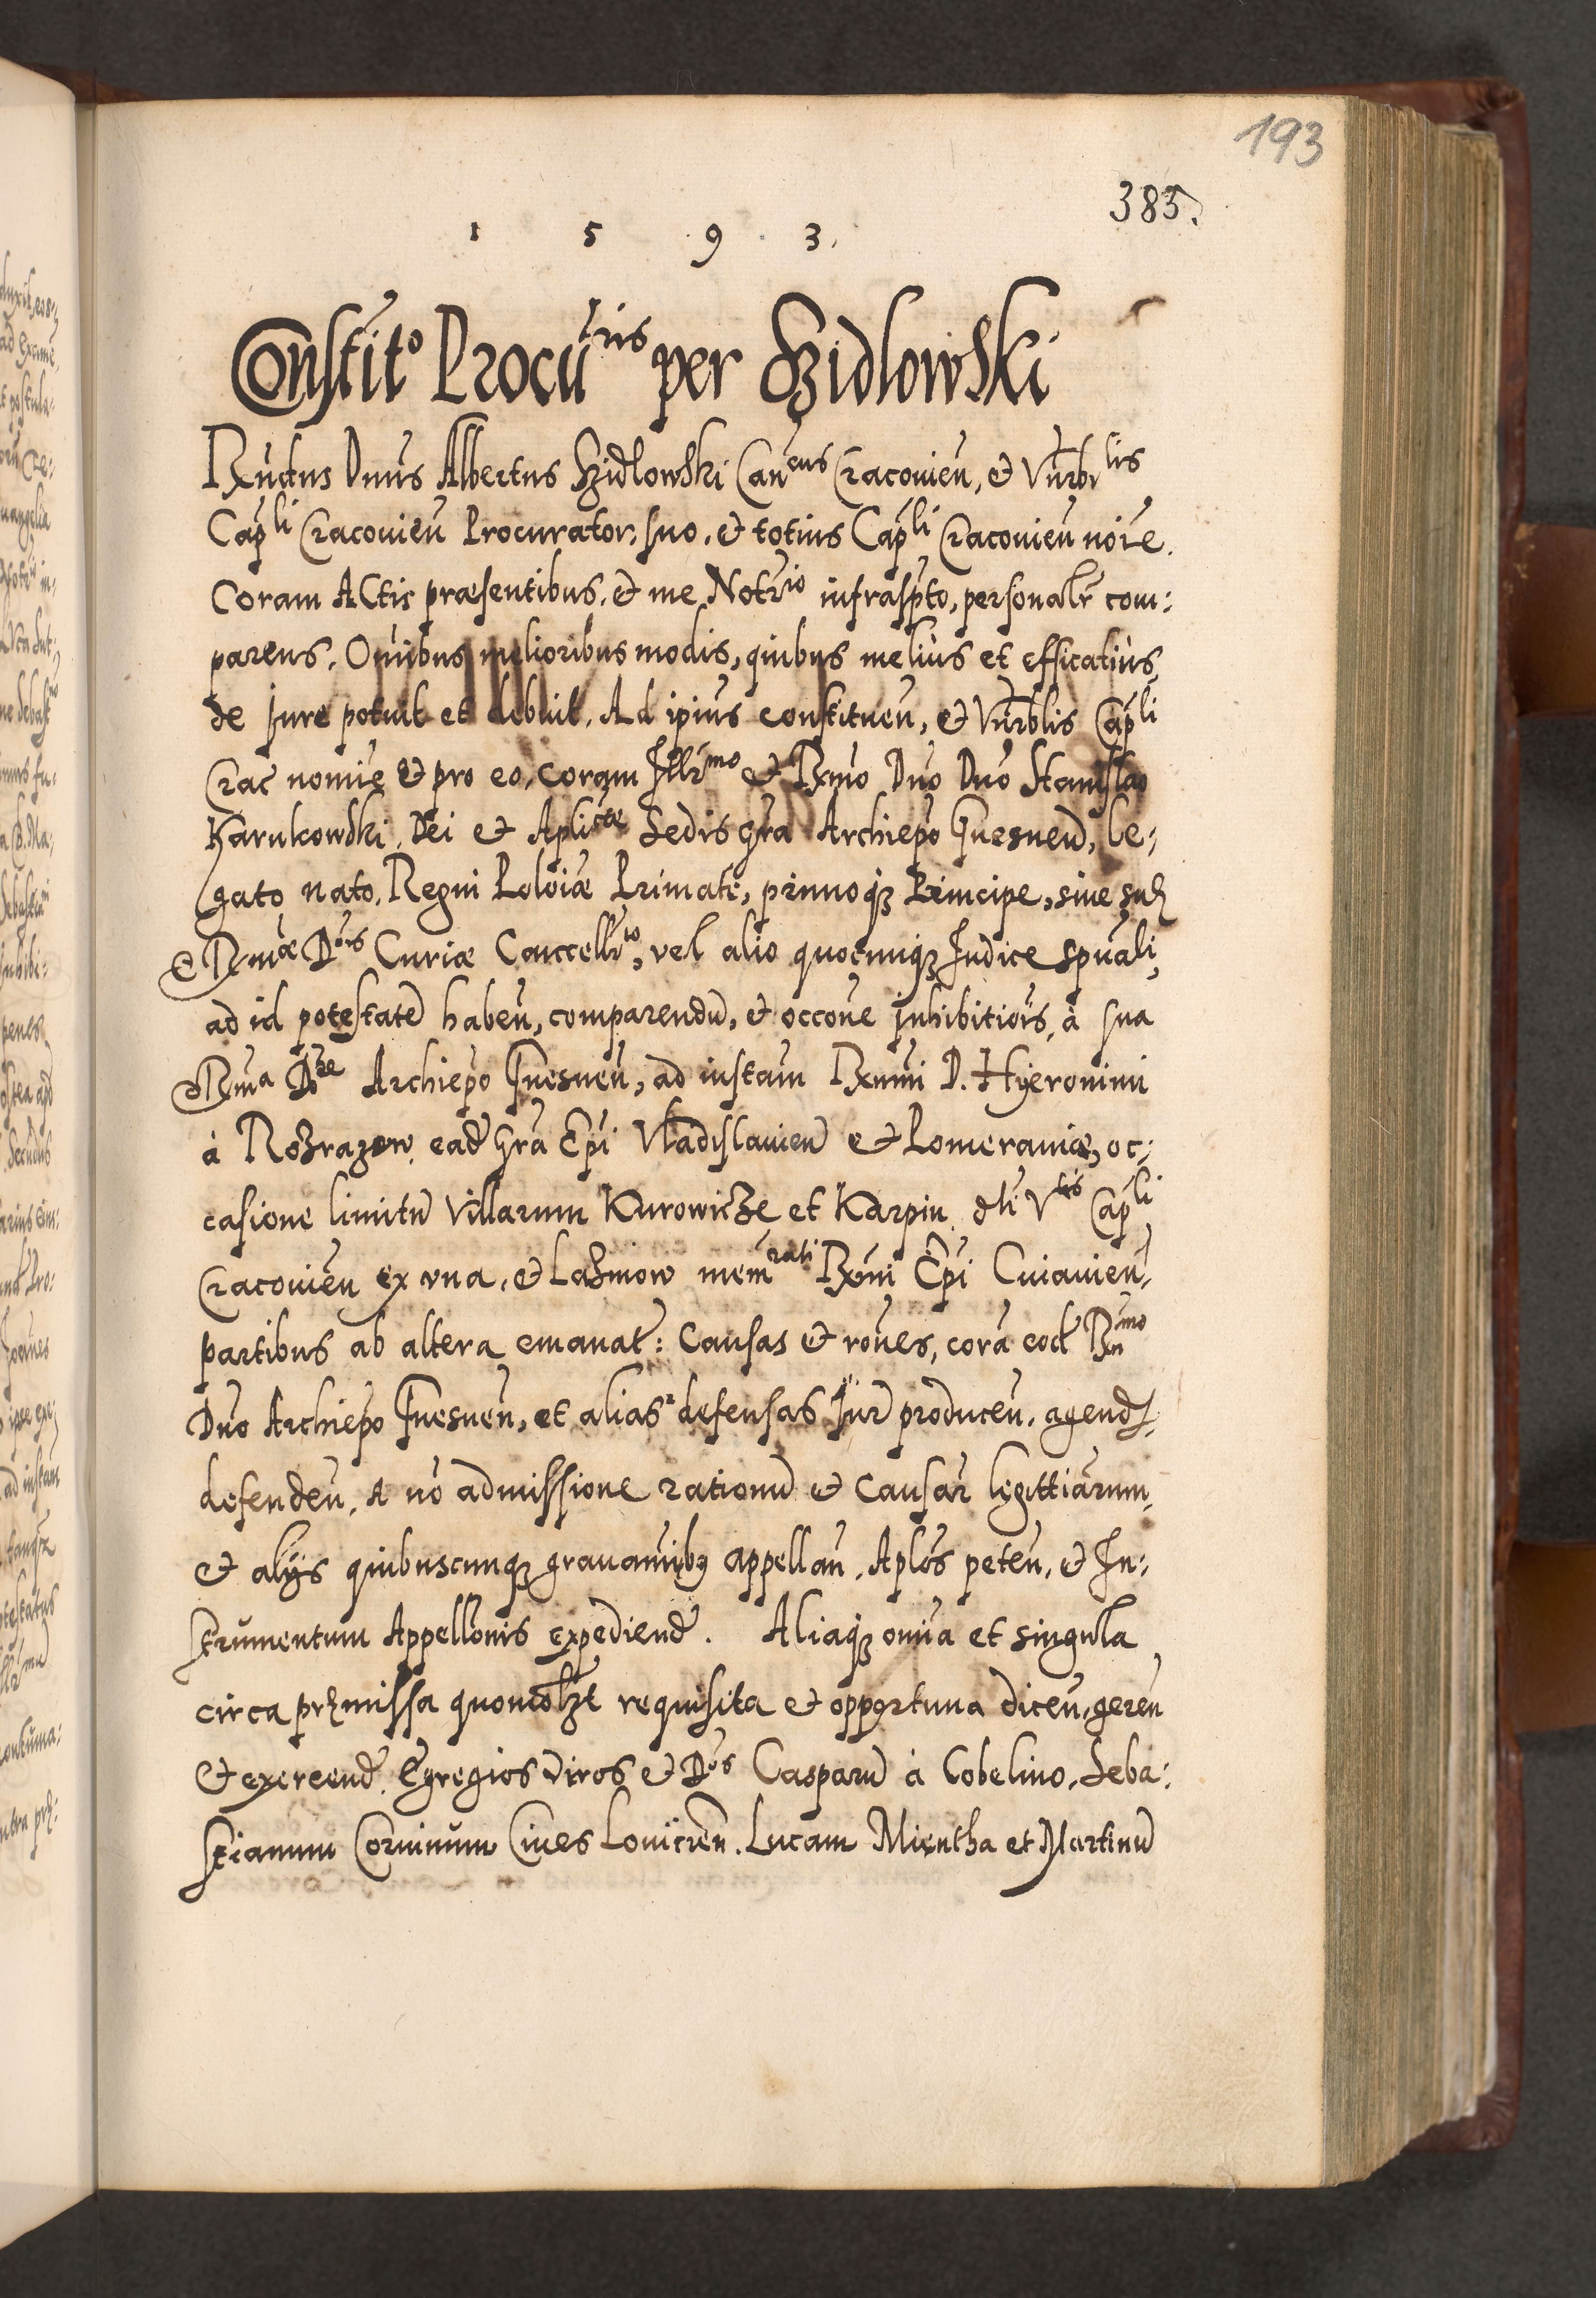 193
385.
1 5 9 3.
Constit° Procu^ris per Szidlowski
Rndus Dnus Albertus Szidlowski Can^cus Cracovien, et Vnrbi^lis
Cap^li Cracovien Procurator, suo, et totius Cap^li Cracovien noie.
Coram Actis præsentibus, et me Notr^io infraspto, personalr com:
parens. Omibus melioribus modis, quibus melius et efficatius,
de Jure potuit et debuit, Ad ipius constituen, et Vnrblis Cap^li
Crac nomie et pro eo, coram Illr^mo et Rxmo Dno Dno Stanislao
Karnkowski, Dei et Aplicæ Sedis gra Archiepo Gnesnen, le:
gato nato, Regni Poloiæ Primate, primoq3 Principe, sive suæ
Rmæ D^ois Curiæ Cancellr^io, vel alio quocunq3 Judice spuali,
ad id potestate haben, comparendu, et occone Inhibitiois, à sua
Rma D^ne Archiepo Gnesnen, ad instam Rxmi D. Hyeronimi
à Rozrazew, ead gra Epi Vladislavien et Pomeraniæ, oc:
casione limitu Villarum Kurowicze et Karpin, dti V^lis Cap^li
Cracovien ex una, et Laznow mem^rati Rxmi Epi Cuiavien,
partibus ab altera emanat: Causas et roñes, cora eod Rx^mo
Dno Archiepo Gnesnen, et alias defensas Jur producen, agend,
defenden, A no admissione rationu et Causar legittiarum,
et alijs quibuscunq3 gravamib9 appellan, Aplos peten, et In:
strumentum Appellonis expediend. Aliaq3 omia et singula
circa præmissa quomolzt requisita et opportuna dicen, geren
et exercend, Egregios viros et D^os Casparu à Cobelino, Seba:
stianum Corvinum Cives Lovicien. Lucam Mientha et Martinu